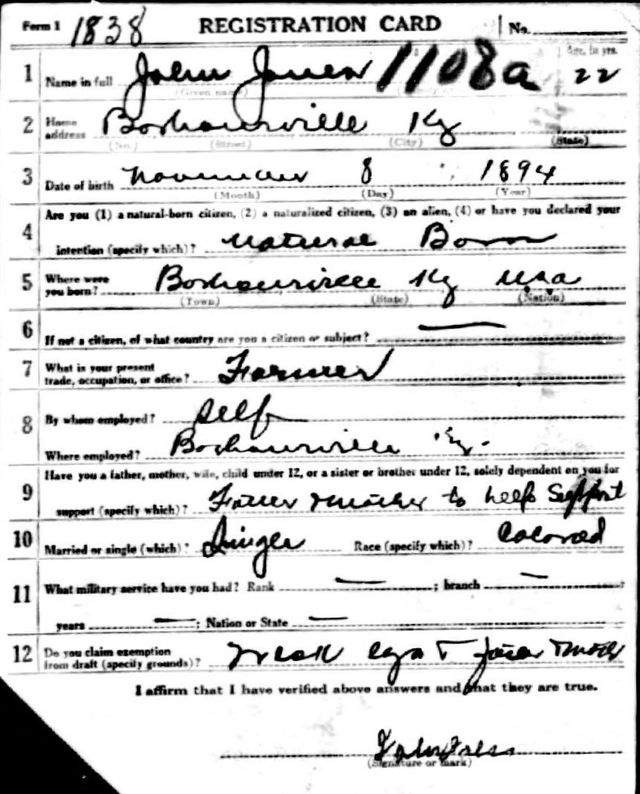 Form 1 1838 REGISTRATION CARD No.
1 Name in full John 1108a Age, in yrs. 22
(Given name)
2 Home address Ky
(No.) (Street) (City) (State)
3 Date of birth November 8 1894
(Month) (Day) (Year)
4 Are you (1) a natural-born citizen, (2) a naturalized citizen, (3) an alien, (4) or have you declared your
intention (specify which)? Natural Born
5 Where were you born? Ky USA
(Town) (State) (Nation)
6 If not a citizen, of what country are you a citizen or subject? —
7 What is your present trade, occupation, or office? Farmer
8 By whom employed? Self
Where employed? Ky.
9 Have you a father, mother, wife, child under 12, or a sister or brother under 12, solely dependent on you for
support (specify which)? Father Mother to help Support
10 Married or single (which)? Single Race (specify which)? Colored
11 What military service have you had? Rank — ; branch — ;
years — ; Nation or State —
12 Do you claim exemption from draft (specify grounds)? Weak
I affirm that I have verified above answers and that they are true.
(Signature or mark)